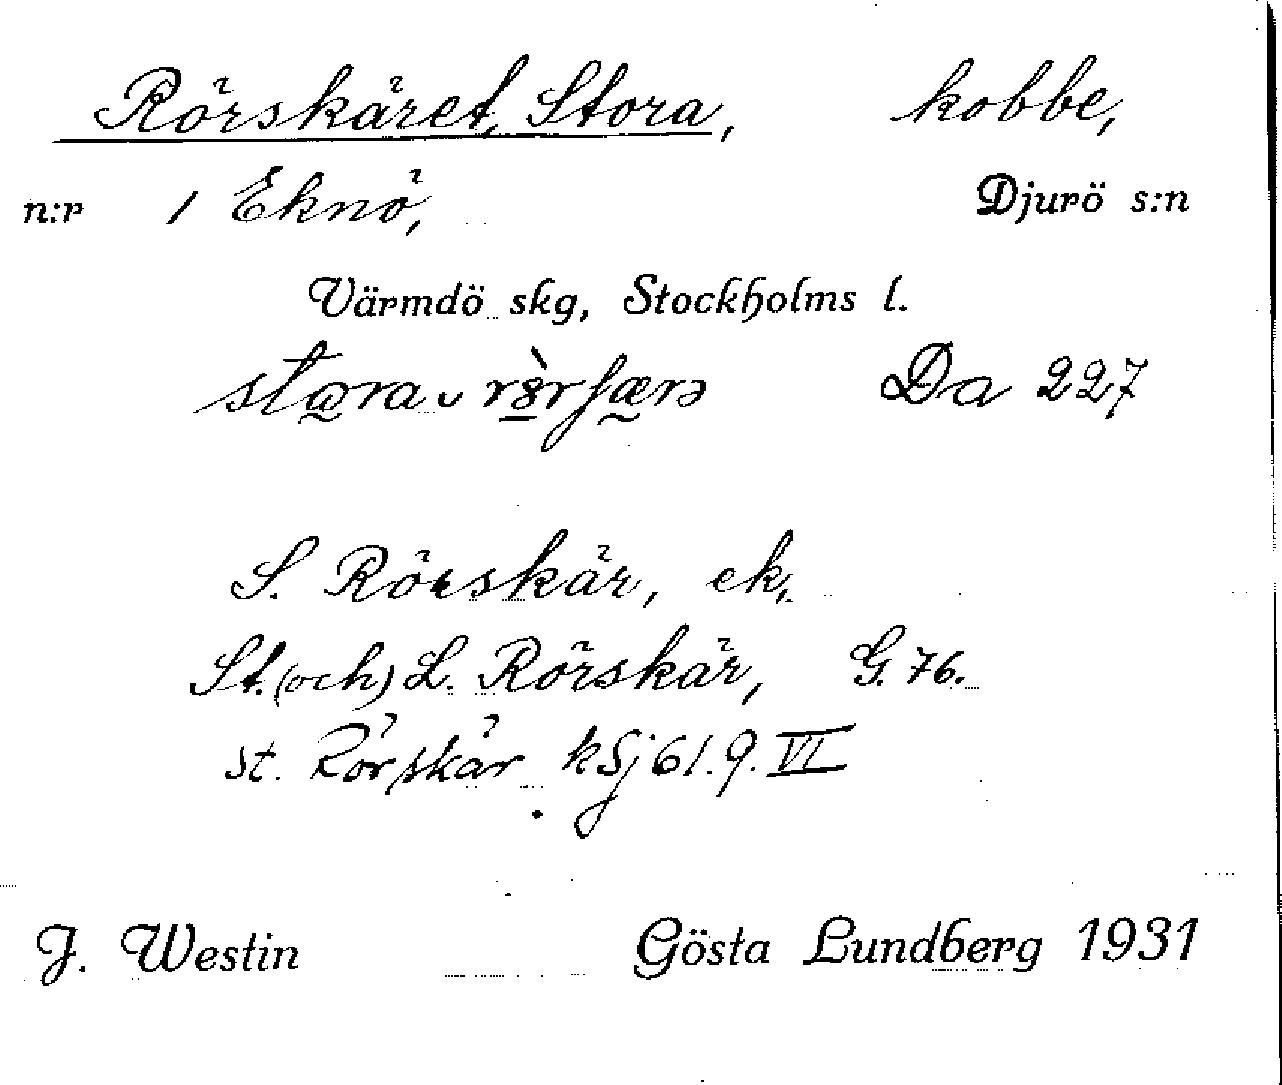 Rörskäret, Stora, kobbe,
n:r 1 Eknö, Djurö s:n
Värmdö skg, Stockholms l.
Da 227
S. Rörskär, ek.
St. (och) L. Rörskär, G. 76.
st. Rörskär kSj 61. 9. VI
J. Westin Gösta Lundberg 1931